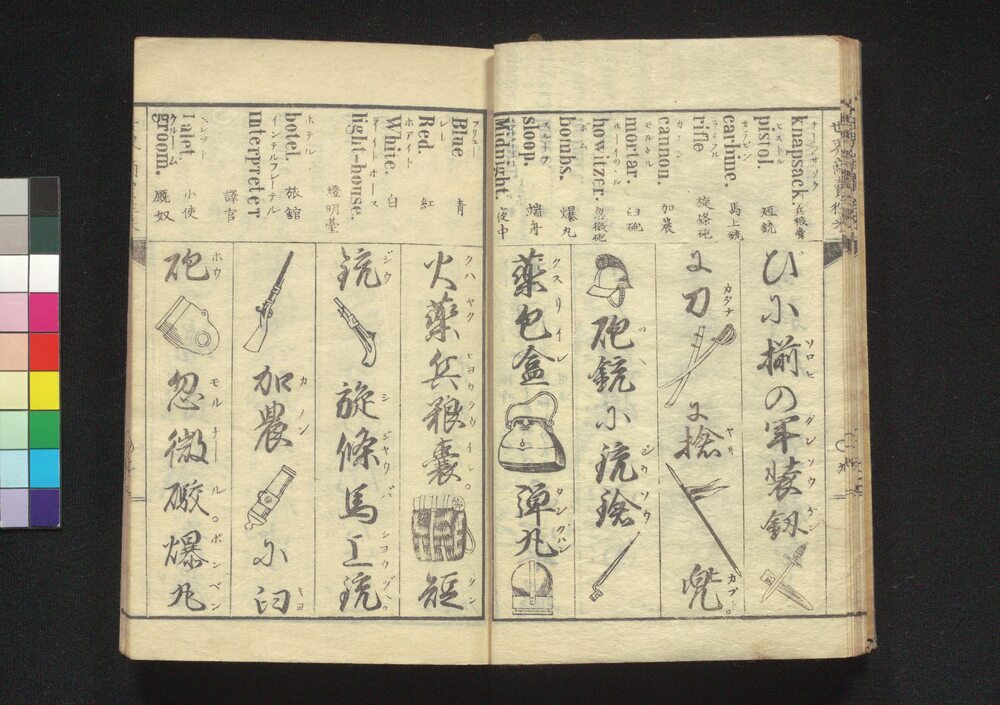 knapsack. 兵粮嚢
ピストル
pistol. 短銃
カラビン
carbine. 馬上銃
ライフル
rifle 旋條砲
カノン
cannon. 加農
モルタル
mortar. 臼砲
howitzer. 忽微砲
ボム
bombs. 爆丸
スループ
sloop. 端舟
Midnight. 夜中
びに揃の軍装釼
ソロヒ グンソウ ケン
に刀に槍兜
カタナ ヤリ カブト。
砲銃に銃槍
ジウソウ
薬包盒弾丸
クスリイレ タングハン
ブリュー
Blue 青
レー
Red. 紅
ホアイト
White. 白
ライトホース
light-house. 燈明基
ホテル
botel. 旅舘
インテルプレートル
interpreter 譯官
ヘレット
Talet 小使
グルーム
groom. 厩奴
火薬兵粮嚢短
クハヤク ヒヨウラウイレ。 タン
銃旋條馬上銃
ジウ シジヤウ バシヨウヅヽ。
加農に臼
カノン キヨ
砲忽微礮爆丸
ホウ モルチール。ボンベン